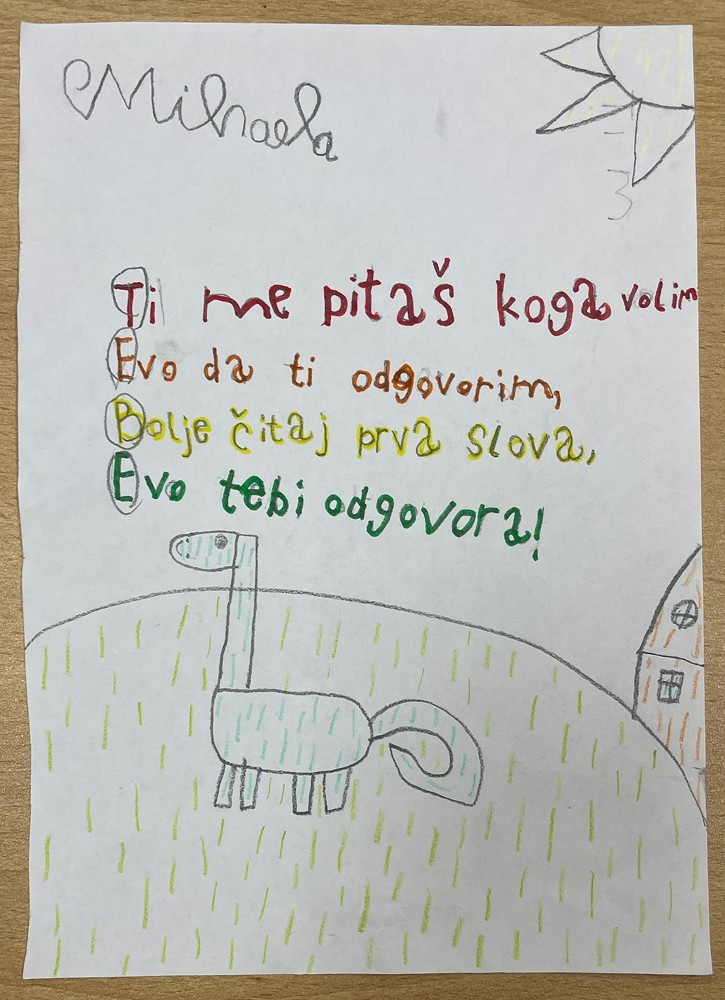 Mihaela
3
Ti me pitaš koga volim
Evo da ti odgovorim,
Bolje čitaj prva slova,
Evo tebi odgovora!